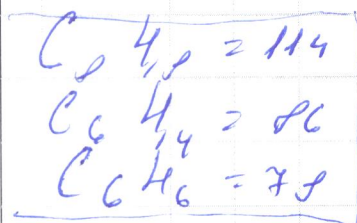 C₈ H₁₈ = 114
C₆ H₁₄ = 86
C₆ H₆ = 78